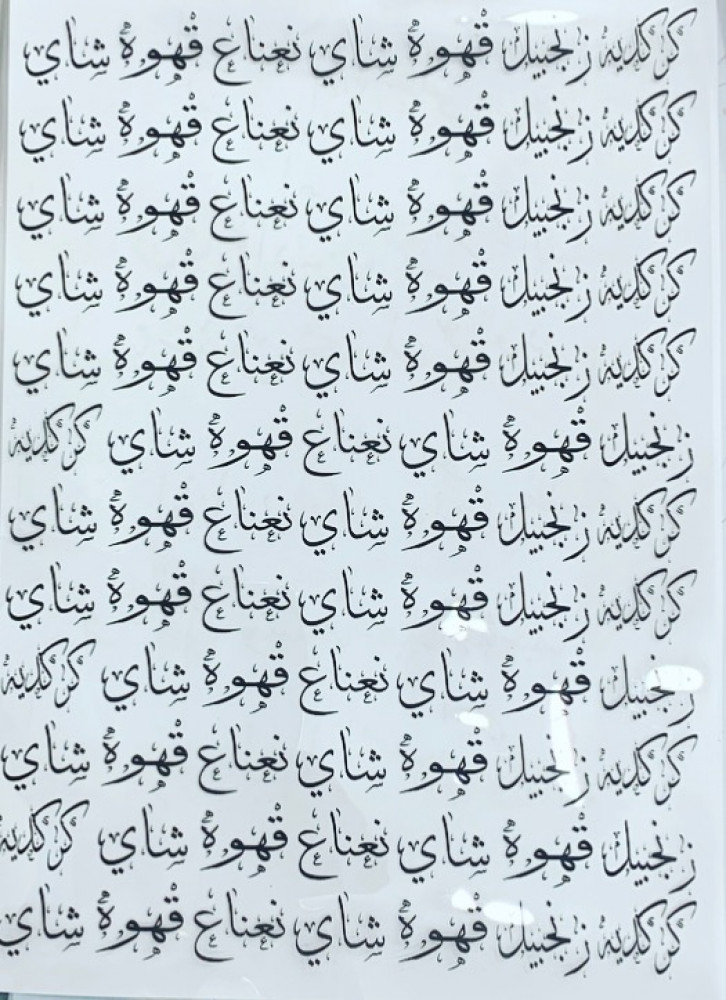 كركديه زنجبيل قهوة شاي نعناع قهوة شاي
كركديه زنجبيل قهوة شاي نعناع قهوة شاي
كركديه زنجبيل قهوة شاي نعناع قهوة شاي
كركديه زنجبيل قهوة شاي نعناع قهوة شاي
كركديه زنجبيل قهوة شاي نعناع قهوة شاي
زنجبيل قهوة شاي نعناع قهوة شاي كركديه
كركديه زنجبيل قهوة شاي نعناع قهوة شاي
كركديه زنجبيل قهوة شاي نعناع قهوة شاي
زنجبيل قهوة شاي نعناع قهوة شاي كركديه
كركديه زنجبيل قهوة شاي نعناع قهوة شاي
زنجبيل قهوة شاي نعناع قهوة شاي كركديه
كركديه زنجبيل قهوة شاي نعناع قهوة شاي